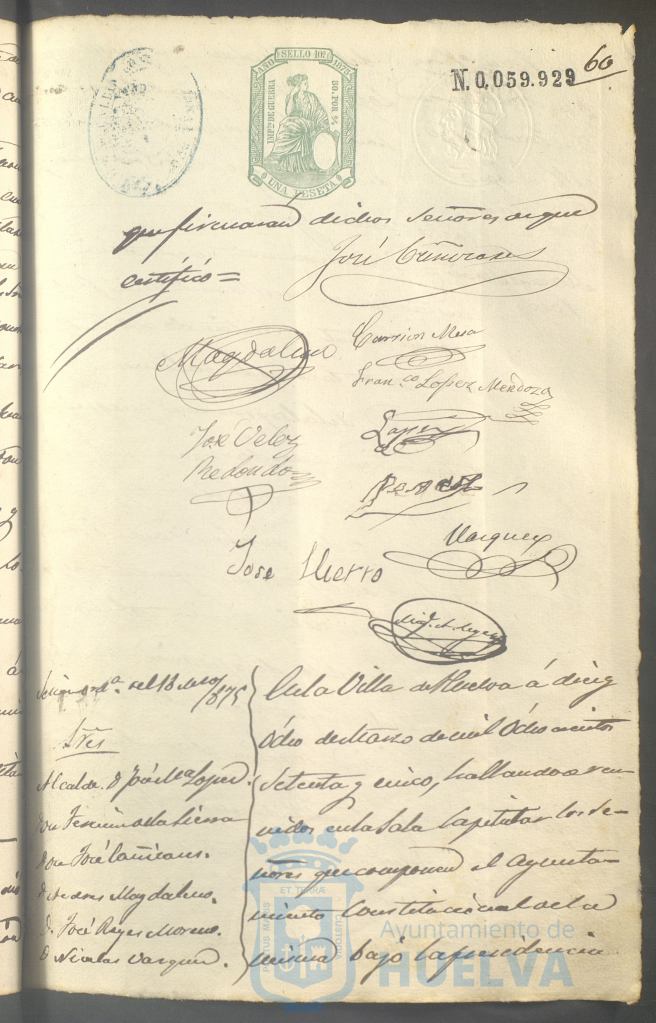 AÑO SELLO 10º 1875
IMPTO DE GUERRA
50 POR %
UNA PESETA
N.0,059.929
60
que firmaran dichos Señores de que
certifico =
José Cañizares
Magdaleno
Carrion Mesa
Fran.co Lopez Mendoza
José Velez
Redondo
Lopez
Vazquez
Jose Hierro
Sesion ord.a del 18 Marzo
1875
Sres
Alcalde. D José M.a Lopez.
Don Fermin de la Sierra
Don José Cañizares.
D Andres Magdaleno.
D. José Reyes Moreno.
D Nicolas Vazquez.
En la Villa de Huelva á diez y
Ocho de Marzo de mil Ochocientos
Setenta y cinco, hallandose reu-
nidos en la Sala Capitular los Se-
ñores que componen el Ayunta-
miento Constitucional de la
misma bajo la presidencia
PORTUS MARIS
ET TERRÆ
CUSTODIA
Ayuntamiento de
HUELVA